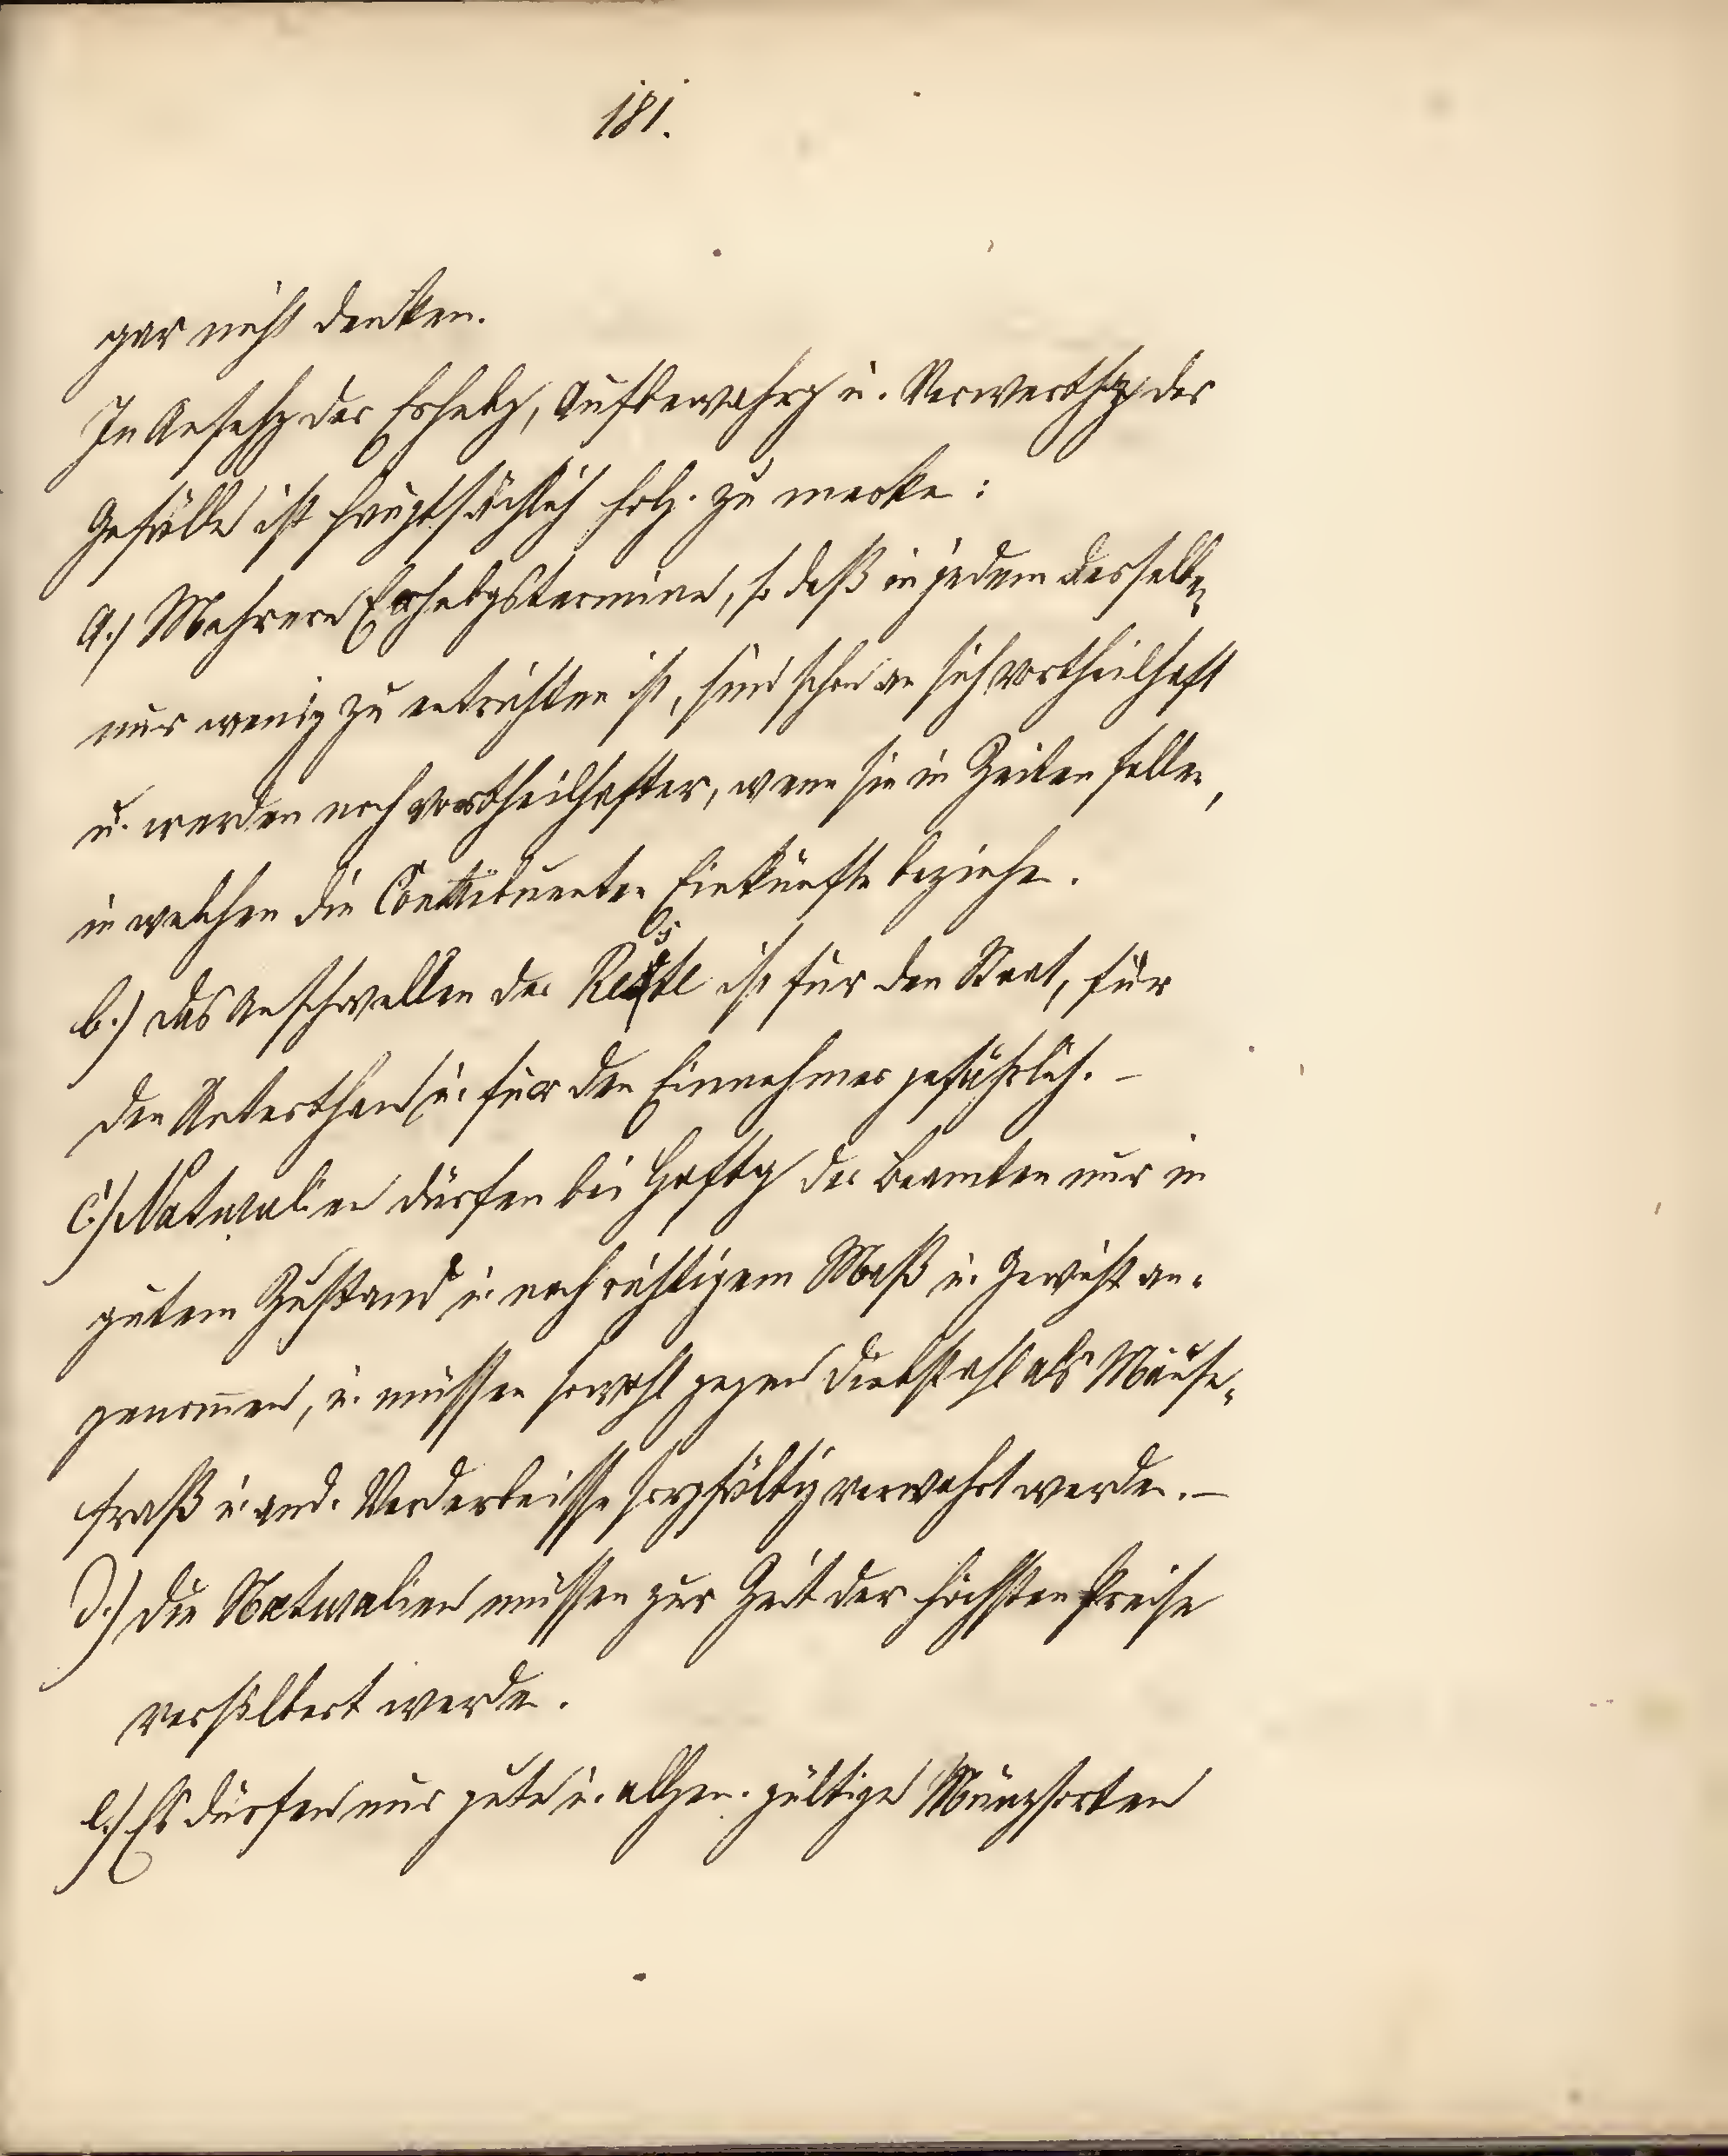 181.
gar nicht denken.
In Ansehg der Erhebg, Aufbewahrg u. Verwerthg der
Gefälle ist hauptsächlich folg. zu merke:
a.) Mehrere Erhebgstermine, so daß in jedem derselbe
nur wenig zu entrichten ist, sind schon an sich vortheilhaft
u. werden noch vortheilhafter, wenn sie in Zeiten falle,
in welchen die Contribuenten Einkünfte beziehe.
b.) das Anschwellen der Reste ist für den Staat, für
den Unterthan u. für den Einnehmer gefährlich. –
c.) Naturalien dürfen bei Haftg der Beamten nur in
gutem Zustand u. nach richtigem Maß u. Gewicht an-
genom̅en, u. müssen sowohl gegen Diebstahl als Mäuse-
fraß u. and. Verderbnisse sorgfältig verwahrt werde. –
d.) die Naturalien müssen zur Zeit der höchsten Preise
versilbert werde.
e.) Es dürfen nur gute u. allgem. gültige Münzsorten